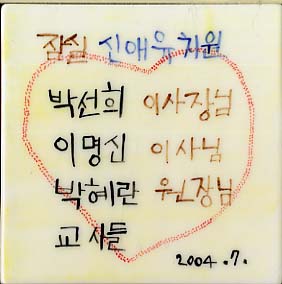 잠실 신애유치원
박선희 이사장님
이명신 이사님
박혜란 원장님
교사들
2004.7.